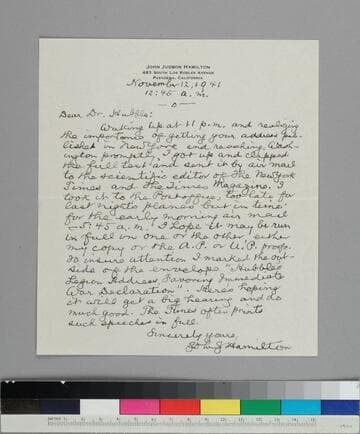 JOHN JUDSON HAMILTON
483 SOUTH LOS ROBLES AVENUE
PASADENA, CALIFORNIA
November 12, 1941
12:45 a.m.
Dear Dr. Hubble:
Waking up at 11 p.m. and realizing
the importance of getting your address pub-
lished in New York and reaching Wash-
ington promptly, I got up and clipped
the full text and sent it by air mail
to the scientific editor of The New York
Times and The Times Magazine. I
took it to the Postoffice, too late for
last night's planes but in time
for the early morning air mail
5:45 a.m. I hope it may be run
in full in one or the other, either
my copy or the A.P. or U.P. proofs.
To insure attention I marked the out-
side of the envelope "Hubble's
Legion Address Favoring Immediate
War Declaration". Here's hoping
it will get a big hearing and do
much good. The Times often prints
such speeches in full.
Sincerely yours,
John J. Hamilton